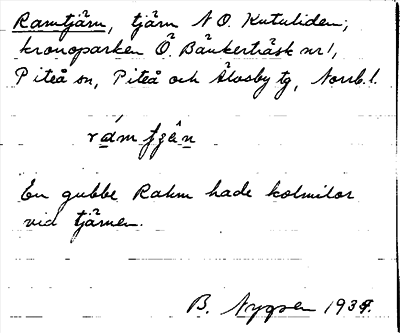 Ramtjärn, tjärn N.O. Kutuliden,
kronoparken Ö. Bänkerträsk nr 1,
Piteå sn, Piteå och Älvsby tg, Norrb. l.
En gubbe Rahm hade kolmilor
vid tjärnen.
B. Nygren 1939.